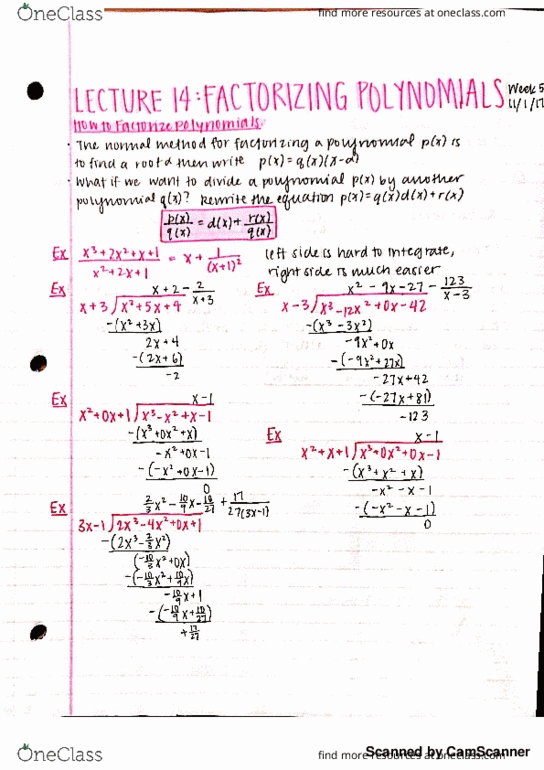 OneClass
find more resources at oneclass.com
LECTURE 14: FACTORIZING POLYNOMIALS
Week 5
11/1/17
How to Factorize Polynomials:
· The normal method for factorizing a polynomial p(x) is
to find a root α then write p(x)=q(x)(x-α)
· What if we want to divide a polynomial p(x) by another
polynomial q(x)? Rewrite the equation p(x)=q(x)d(x)+r(x)
p(x)/q(x) = d(x)+ r(x)/q(x)
Ex (x³+2x²+x+1)/(x²+2x+1) = x + 1/(x+1)²
left side is hard to integrate,
right side is much easier
Ex
x+2-2/(x+3)
x+3 √x²+5x+4
-(x²+3x)
2x+4
-(2x+6)
-2
Ex
x²-9x-27-123/(x-3)
x-3 √x³-12x²+0x-42
-(x³-3x²)
-9x²+0x
-(-9x²+27x)
-27x+42
-(-27x+81)
-123
Ex
x-1
x²+0x+1 √x³-x²+x-1
-(x³+0x²+x)
-x²+0x-1
-(-x²+0x-1)
0
Ex
x-1
x²+x+1 √x³+0x²+0x-1
-(x³+x²+x)
-x²-x-1
-(-x²-x-1)
0
Ex
2/3x²-10/9x-10/27+17/27(3x-1)
3x-1 √2x³-4x²+0x+1
-(2x³-2/3x²)
(-10/3x²+0x)
-(-10/3x²+10/9x)
-10/9x+1
-(-10/9x+10/27)
+17/27
Scanned by CamScanner
OneClass
find more resources at oneclass.com